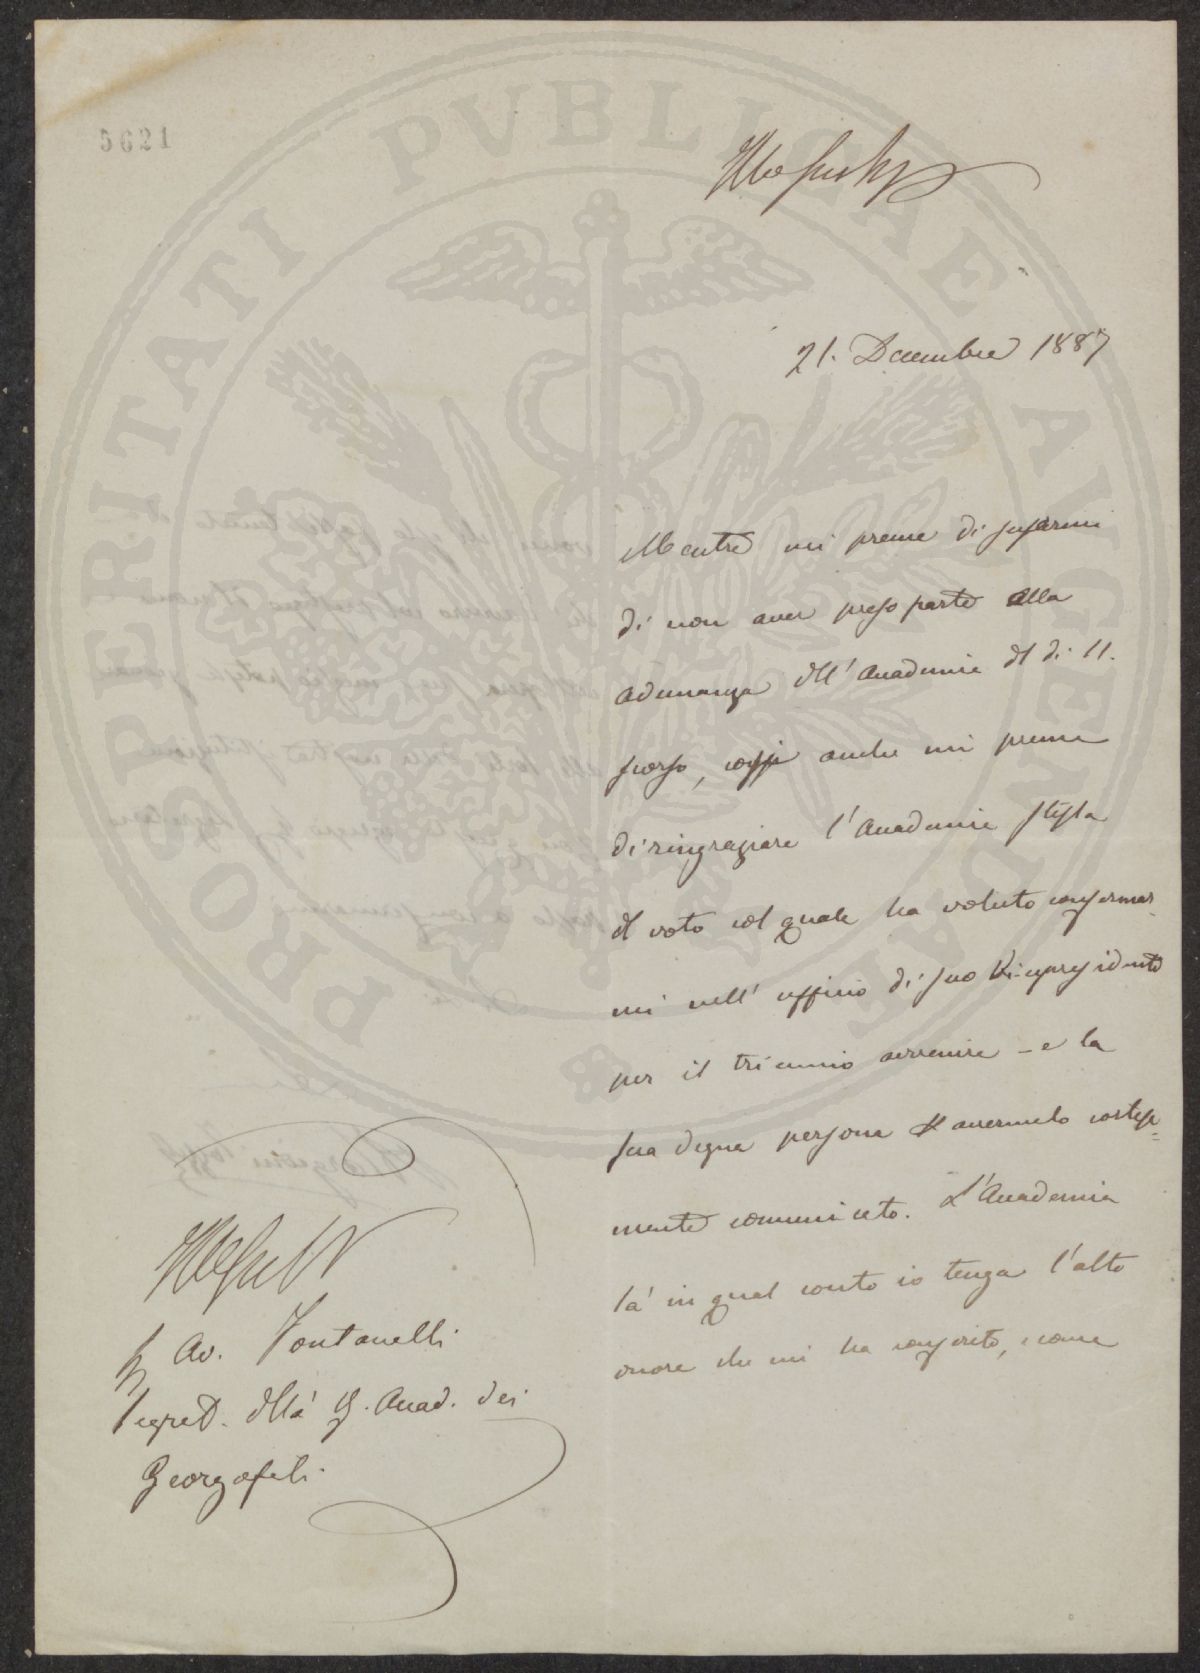 5621
PROSPERITATI PVBLICAE AVGENDAE
21. Dicembre 1887
Mentre mi preme di scusarmi
di non aver preso parte alla
adunanza dell'Accademia del dì 11.
scorso, così anche mi preme
di ringraziare l'Accademia stessa
del voto col quale ha voluto confermar-
mi nell'ufficio di suo Vicepresidente
per il triennio avvenire - e la
sua degna persona d'avermelo cortese=
mente comunicato. L'Accademia
sà in qual conto io tenga l'alto
onore che mi ha conferito, come
Av. Fontanelli
Segret. della R. Accad. dei
Georgofili.